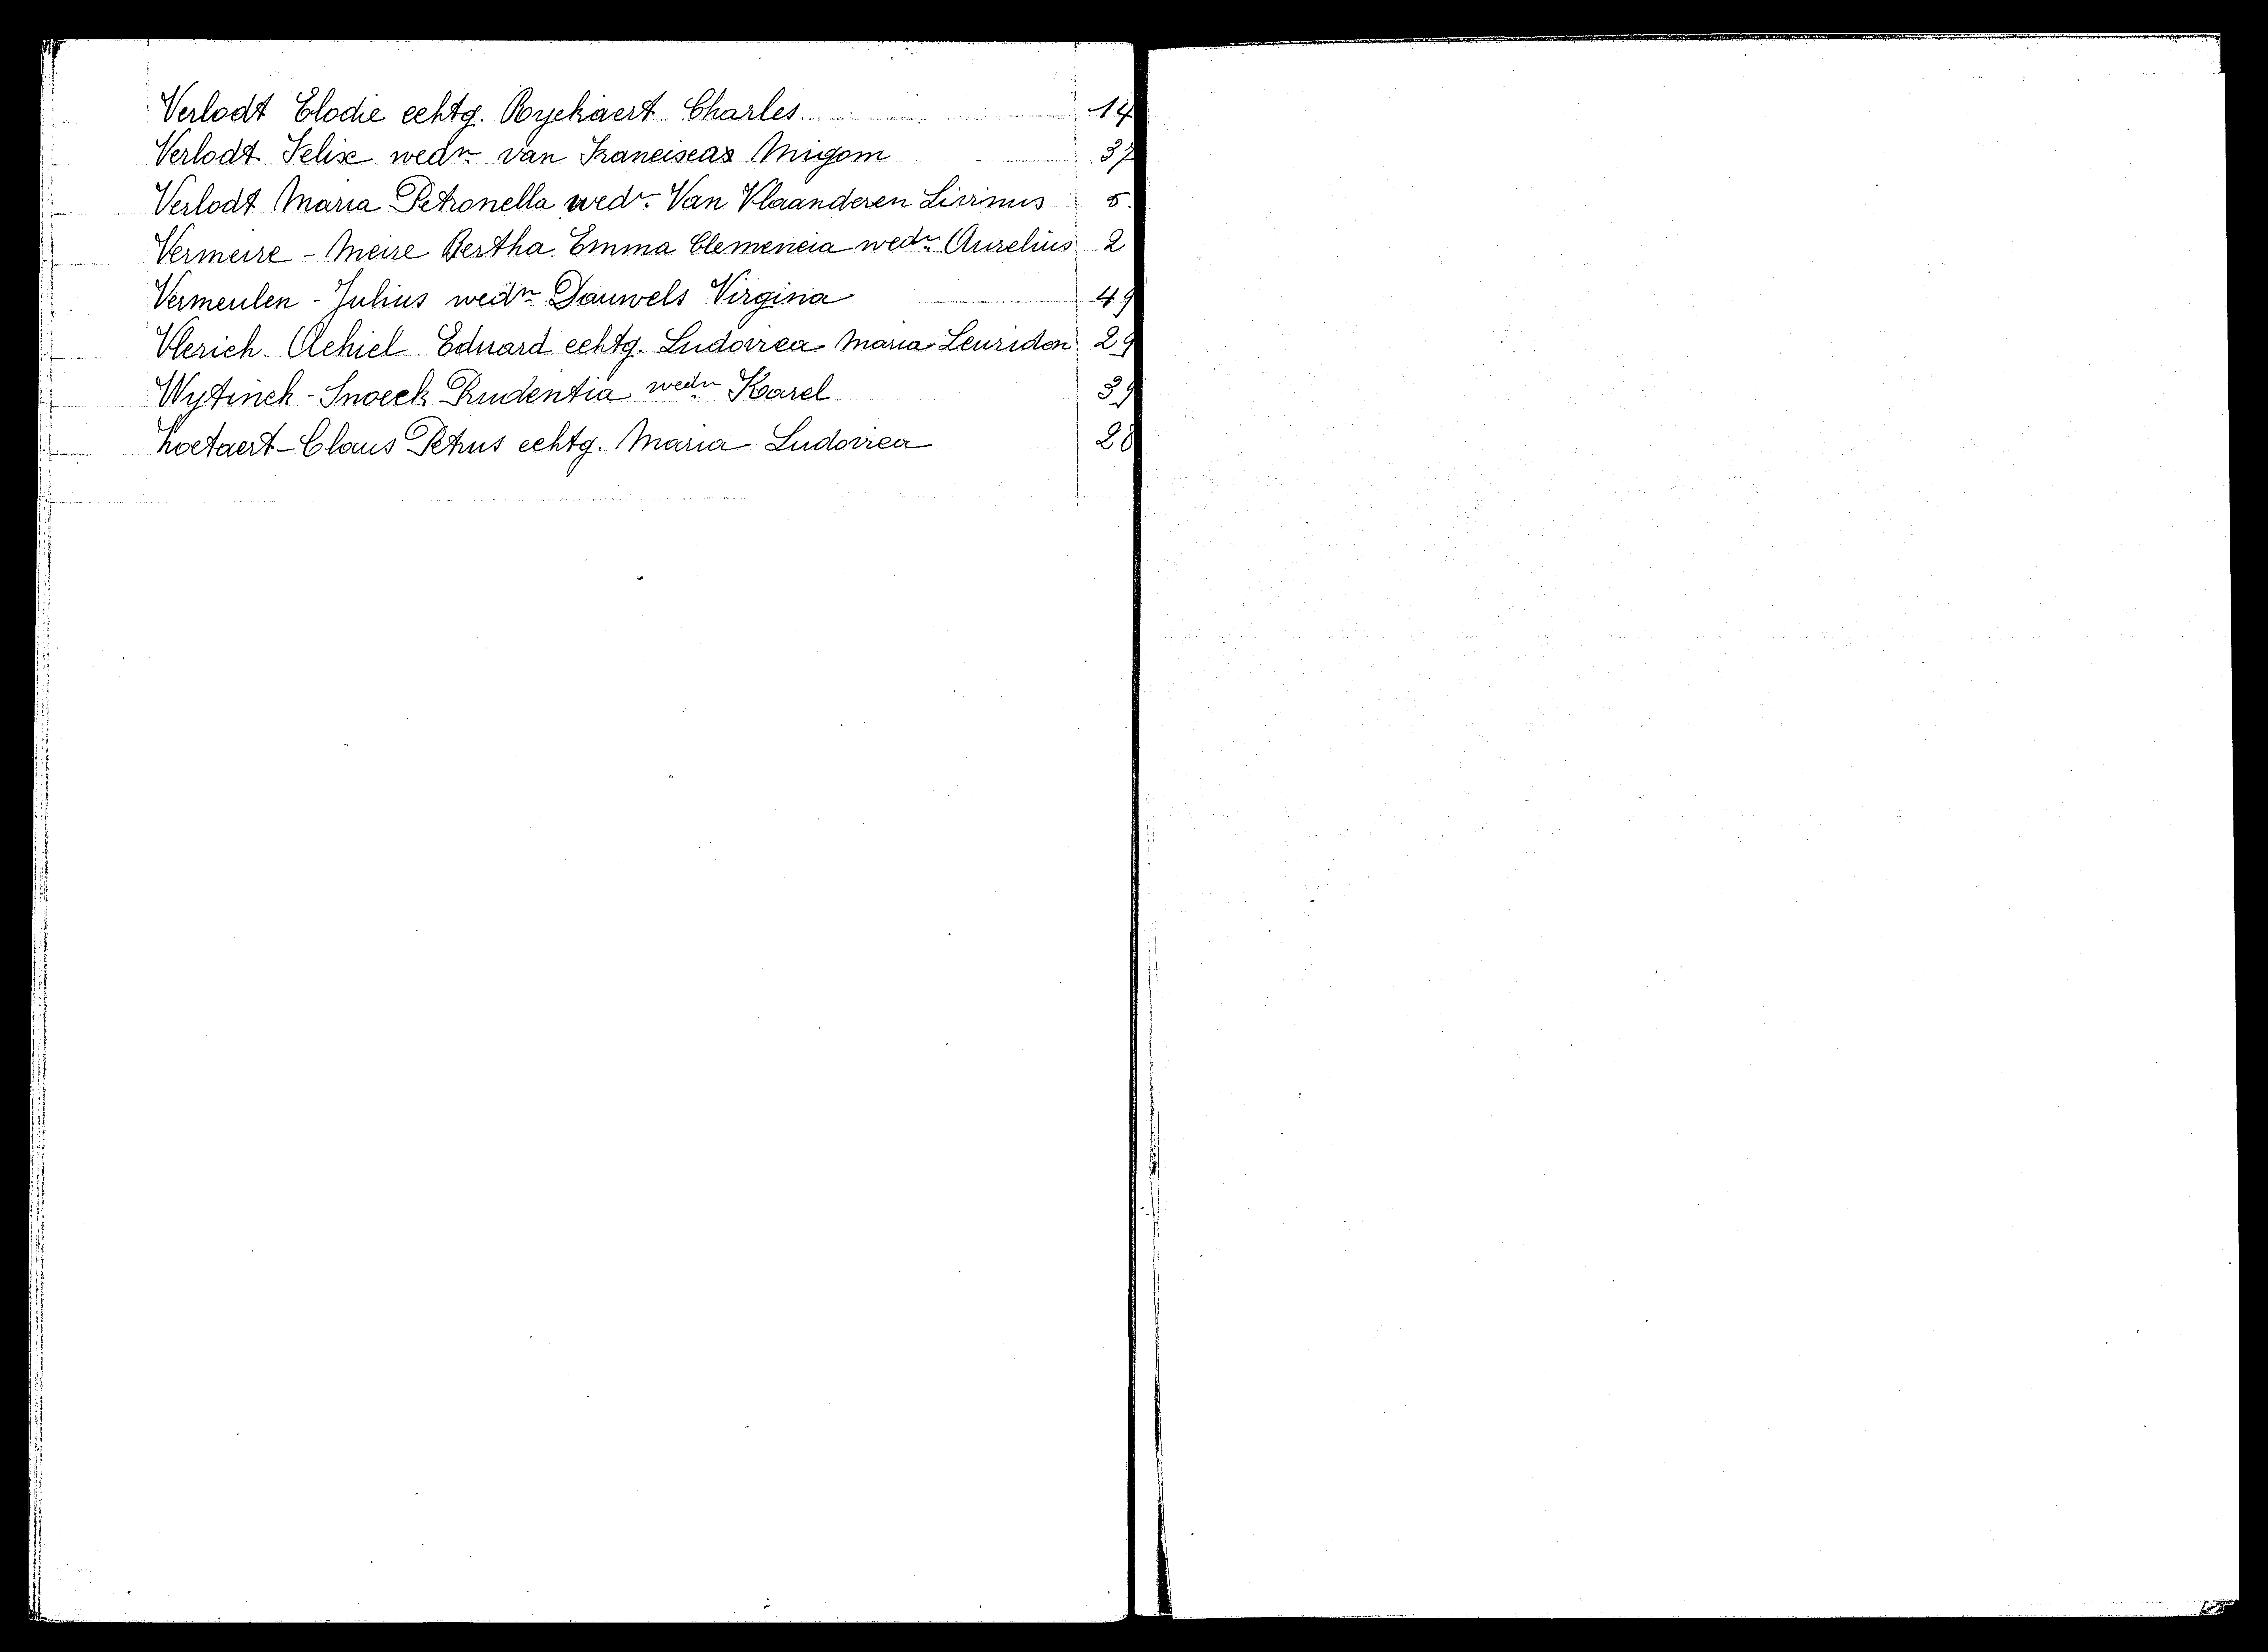 Verlodt Elodie echtg. Ryckaert Charles 14
Verlodt Felix wedr van Franciscas Migom 37
Verlodt Maria Petronella wedr. Van Vlaanderen Livinus 5.
Vermeire - Meire Bertha Emma Clemencia wedr. Aurelius 2
Vermeulen - Julius wedr Dauwels Virginia 49
Vlerich Achiel Eduard echtg. Ludovica Maria Leuridon 29
Wytinck - Snoeck Prudentia wedr Karel 39
Zoetaert - Claus Petrus echtg. Maria Ludovica 28